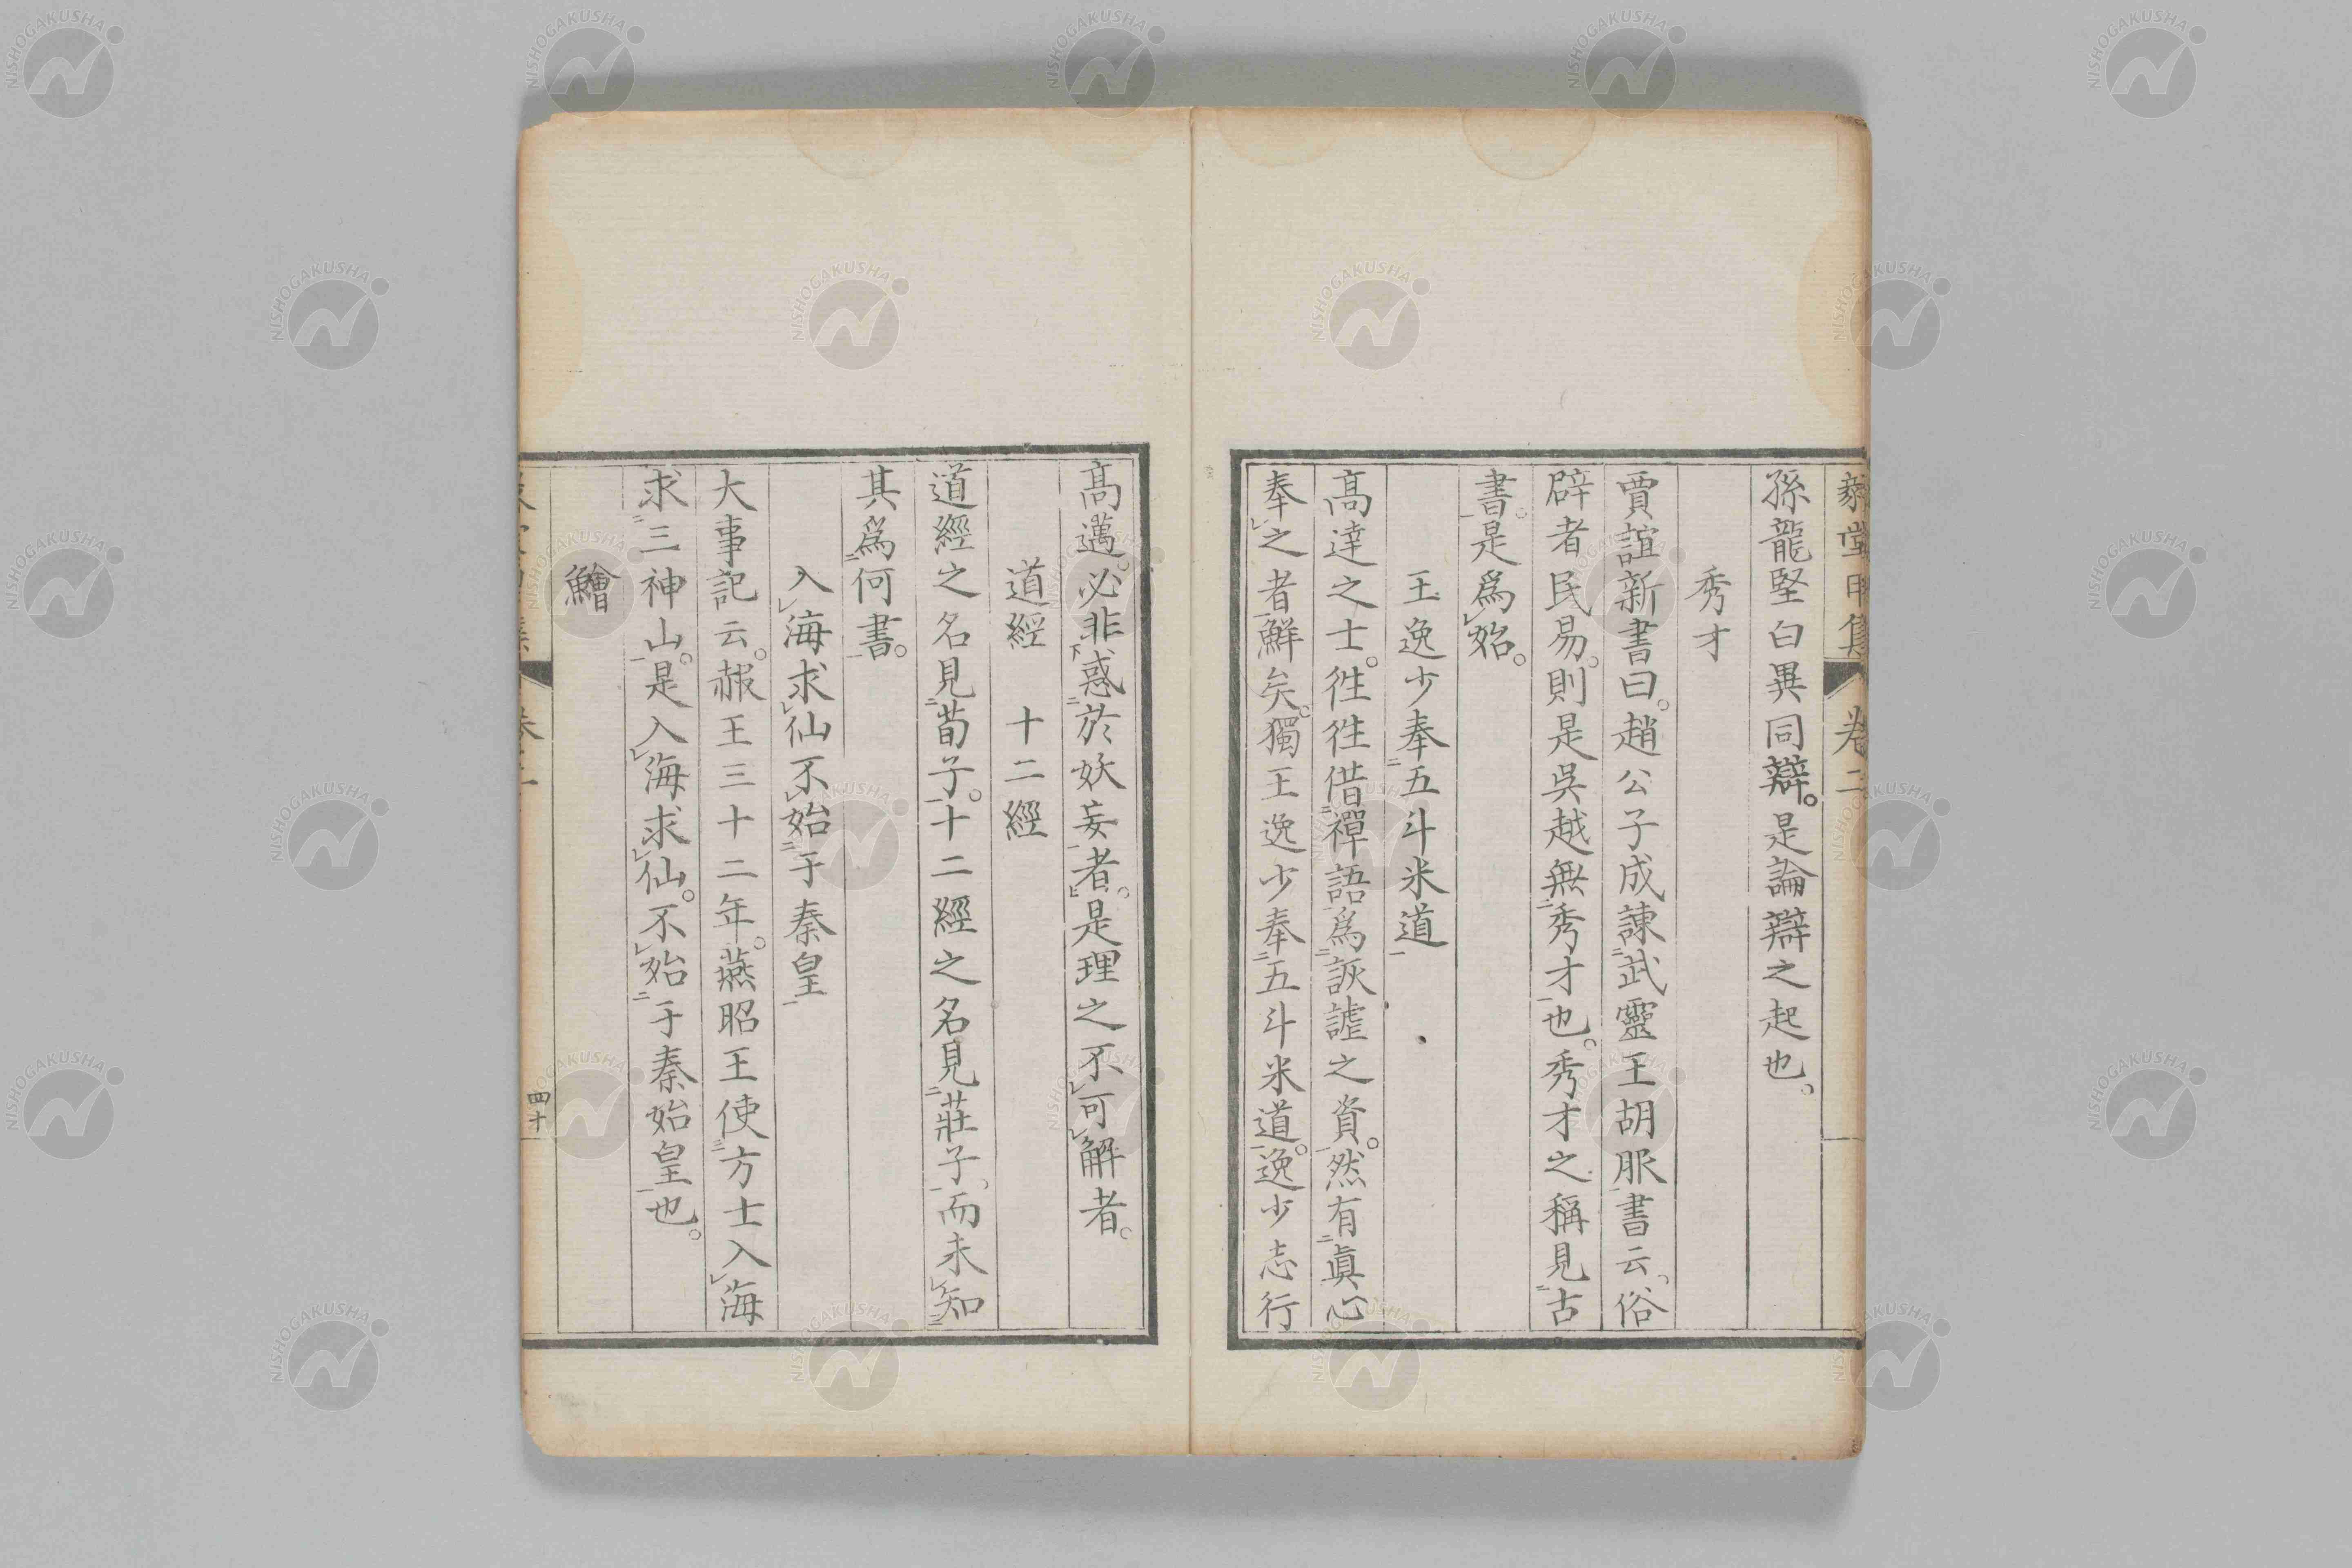 孫龍堅白異同辯。是論辯之起也。
秀才
賈誼新書曰。趙公子成諫武靈王胡服書云。俗
辟者民易。則是吳越無秀才也。秀才之稱見古
書。是爲始。
王逸少奉五斗米道
高達之士。徃徃借禪語爲詼謔之資。然有眞心
奉之者鮮矣。獨王逸少奉五斗米道。逸少志行
高邁。必非惑於妖妄者。是理之不可解者。
道經 十二經
道經之名見荀子。十二經之名見莊子。而未知
其爲何書。
入海求仙不始于秦皇
大事記云。赧王三十二年。燕昭王使方士入海
求三神山。是入海求仙。不始于秦始皇也。
鱠
四十
NISHOGAKUSHA